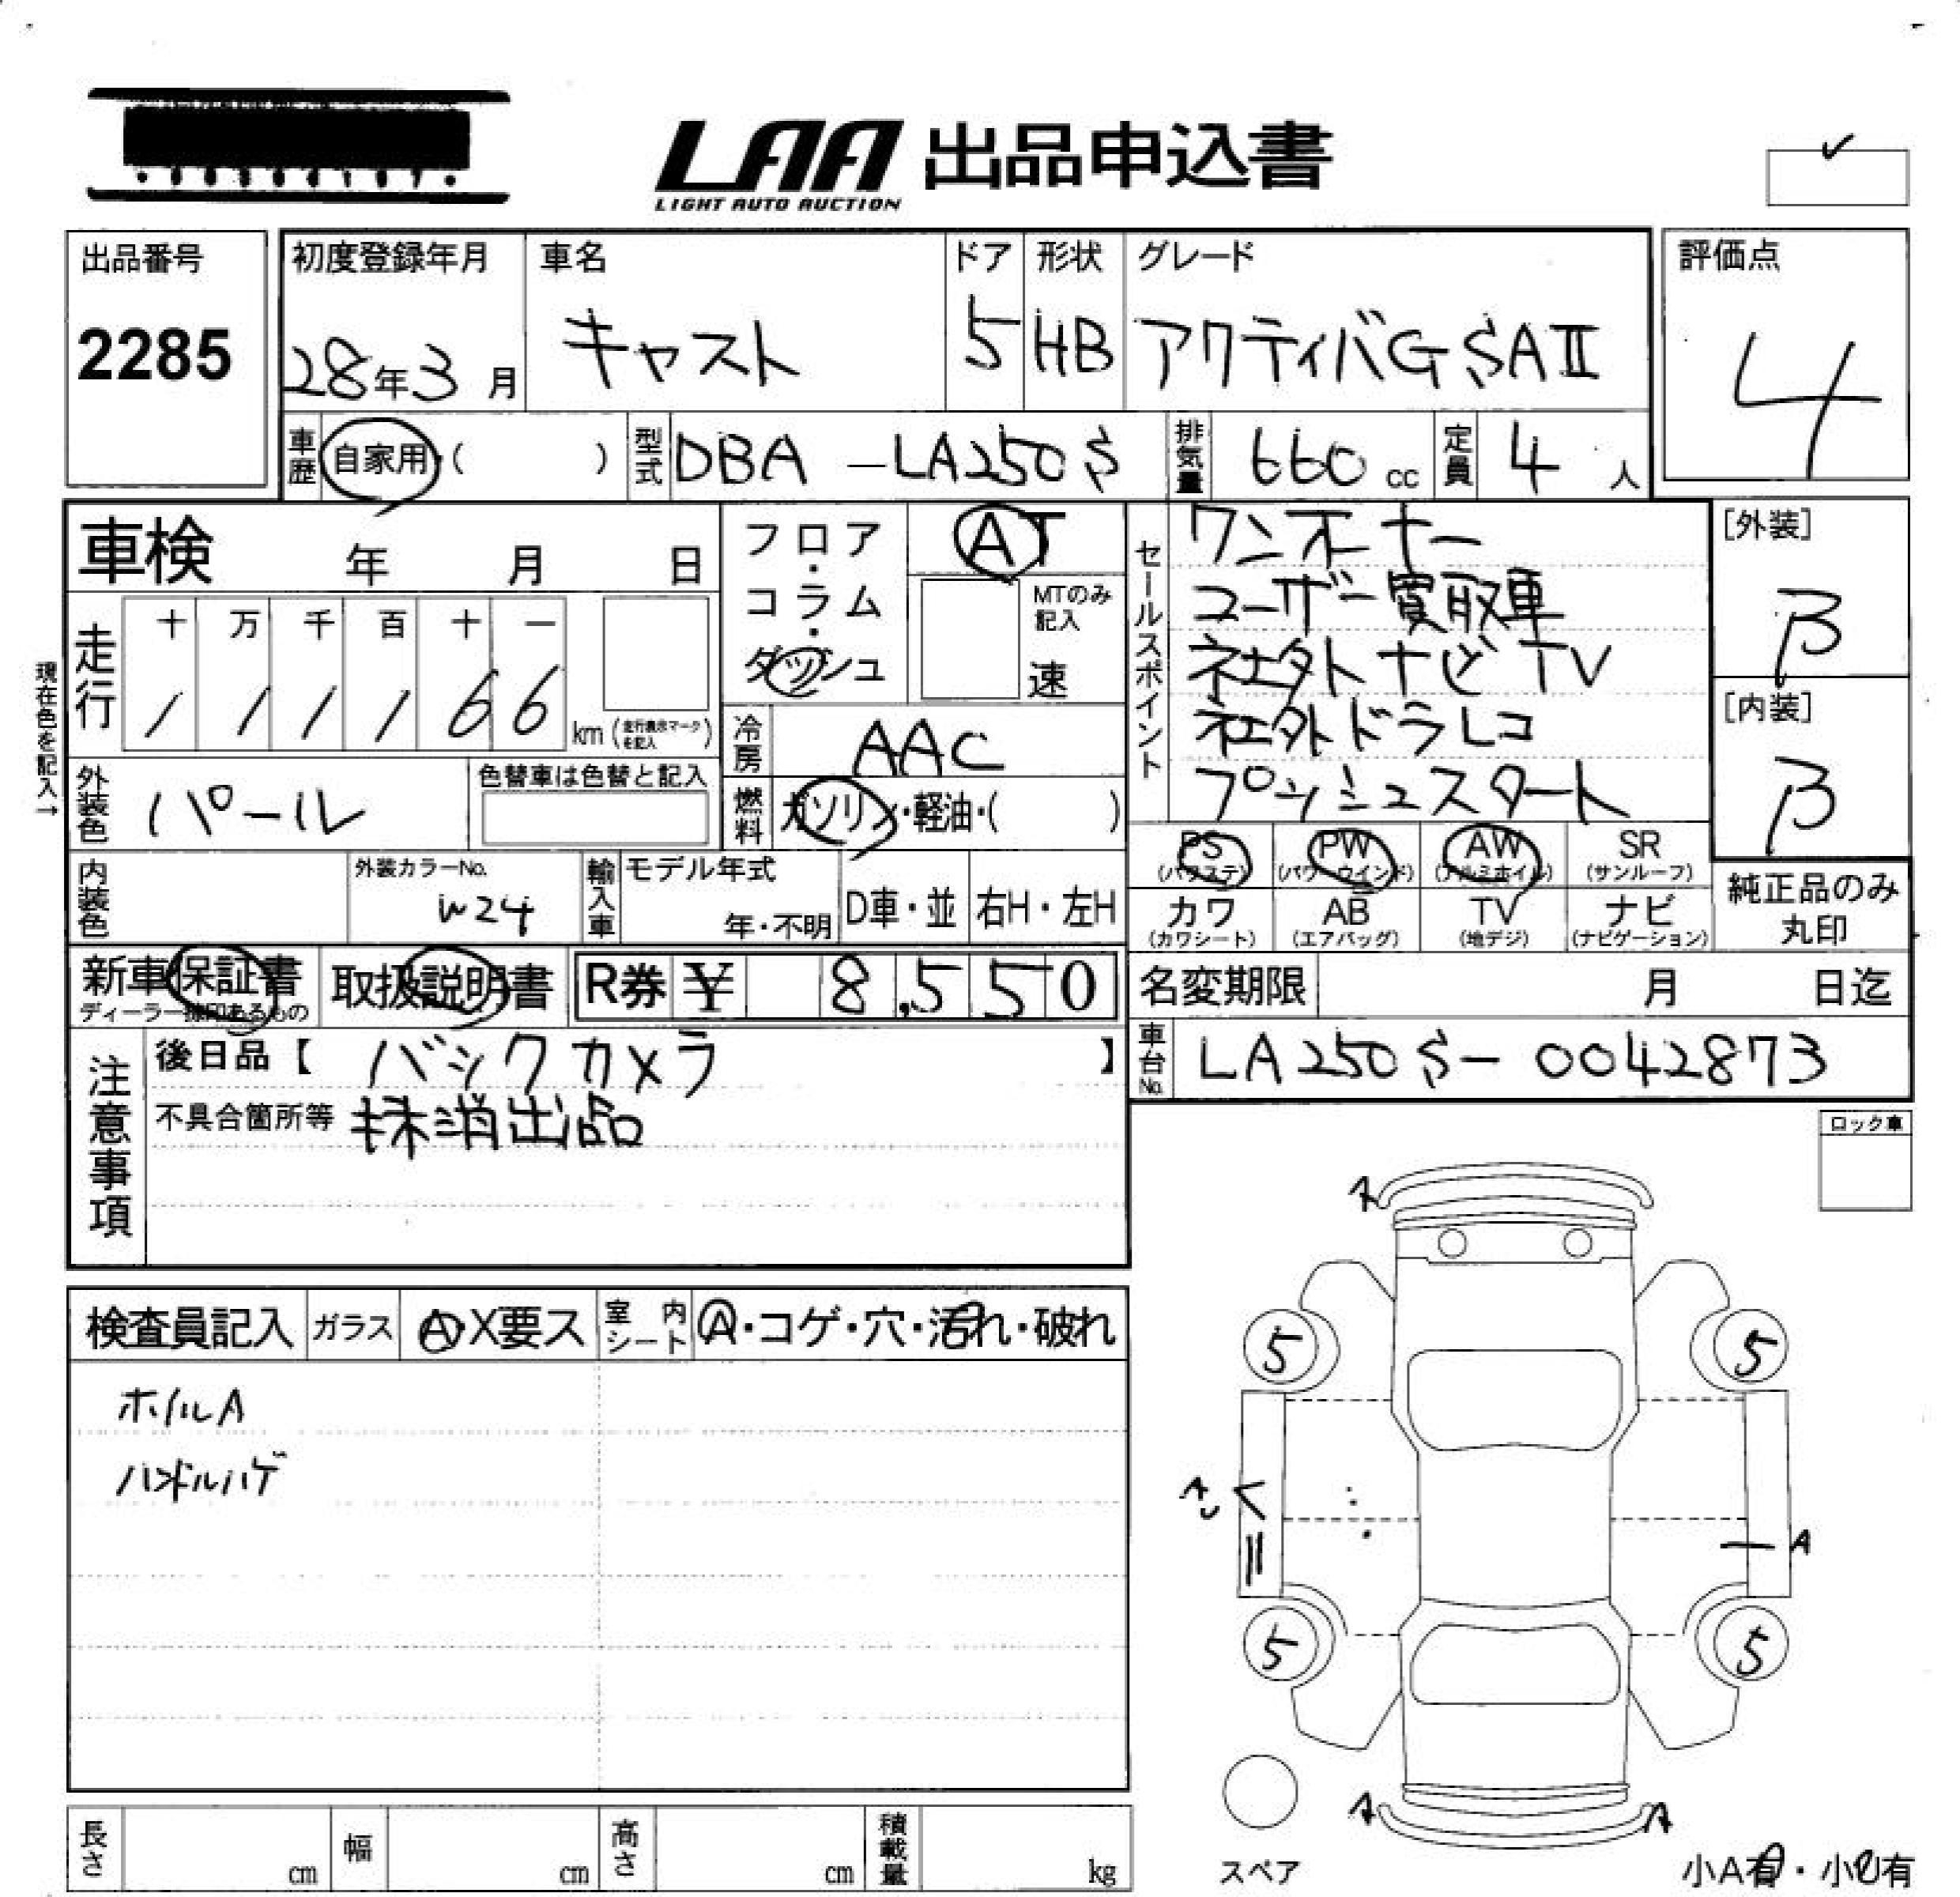 LAA 出品申込書
LIGHT AUTO AUCTION
出品番号
2285
初度登録年月
28年3月
車名
キャスト
ドア
5
形状
HB
グレード
アクティバG SAⅡ
評価点
4
車歴 自家用・( )
型式 DBA-LA250S
排気量 660 cc
定員 4 人
車検 年 月 日
フロア・コラム・ダッシュ
AT
MTのみ記入
速
セールスポイント
ワンオーナー
ユーザー買取車
社外ナビTV
社外ドラレコ
プッシュスタート
[外装]
B
[内装]
B
現在色を記入→
走行
十 万 千 百 十 一
/ / / / 6 6
km (走行表示マークを記入)
冷房 AAC
外装色 パール
色替車は色替と記入
燃料 ガソリン・軽油・( )
PS (パワステ)
PW (パワーウインド)
AW (アルミホイル)
SR (サンルーフ)
カワ (カワシート)
AB (エアバッグ)
TV (地デジ)
ナビ (ナビゲーション)
純正品のみ丸印
内装色
外装カラーNo.
W24
輸入車
モデル年式
年・不明
D車・並
右H・左H
新車保証書
ディーラー捺印あるもの
取扱説明書
R券 ¥ 8,550
名変期限 月 日迄
注意事項
後日品【 バックカメラ 】
不具合箇所等 抹消出品
車台No. LA250S-0042873
ロック車
検査員記入
ガラス
A・X要ス
室内シート
A・コゲ・穴・汚れ・破れ
ホイルA
ハンドルハゲ
A
5
5
A
A
5
5
A
A
スペア
小A有・小U有
長さ cm
幅 cm
高さ cm
積載量 kg